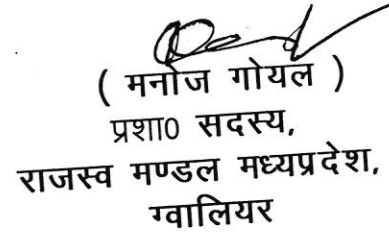 ( मनोज गोयल )
प्रशा0 सदस्य,
राजस्व मण्डल मध्यप्रदेश,
ग्वालियर